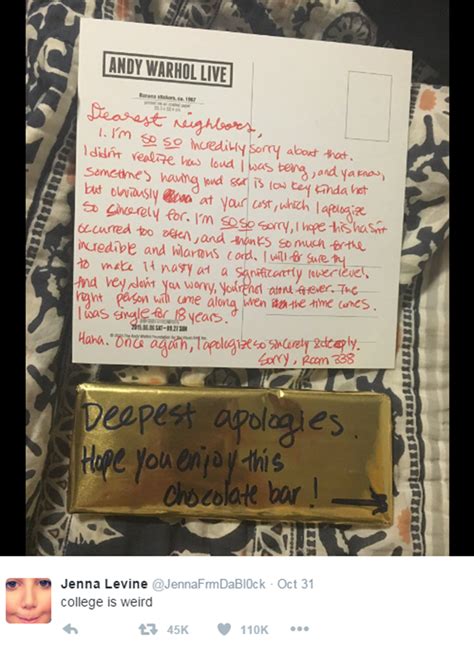 ANDY WARHOL LIVE
Banana stickers, ca. 1967
Dearest neighbors,
1. I'm so so incredibly sorry about that.
I didn't realize how loud I was being, and ya know,
sometimes having loud sex is low key kinda hot
but obviously at your cost, which I apologize
so sincerely for. I'm so so sorry, I hope this hasn't
occurred too often, and thanks so much for the
incredible and hilarious card. I will be sure try
to make it nasty at a significantly lower level.
And hey, don't you worry, you're not alone forever. The
right person will come along when the time comes.
I was single for 18 years.
2015.06.06 SAT-09.27 SUN
Haha. Once again, I apologize so sincerely & deeply.
Sorry, Room 338
Deepest apologies.
Hope you enjoy this
chocolate bar!
Jenna Levine @JennaFrmDaBl0ck · Oct 31
college is weird
45K 110K